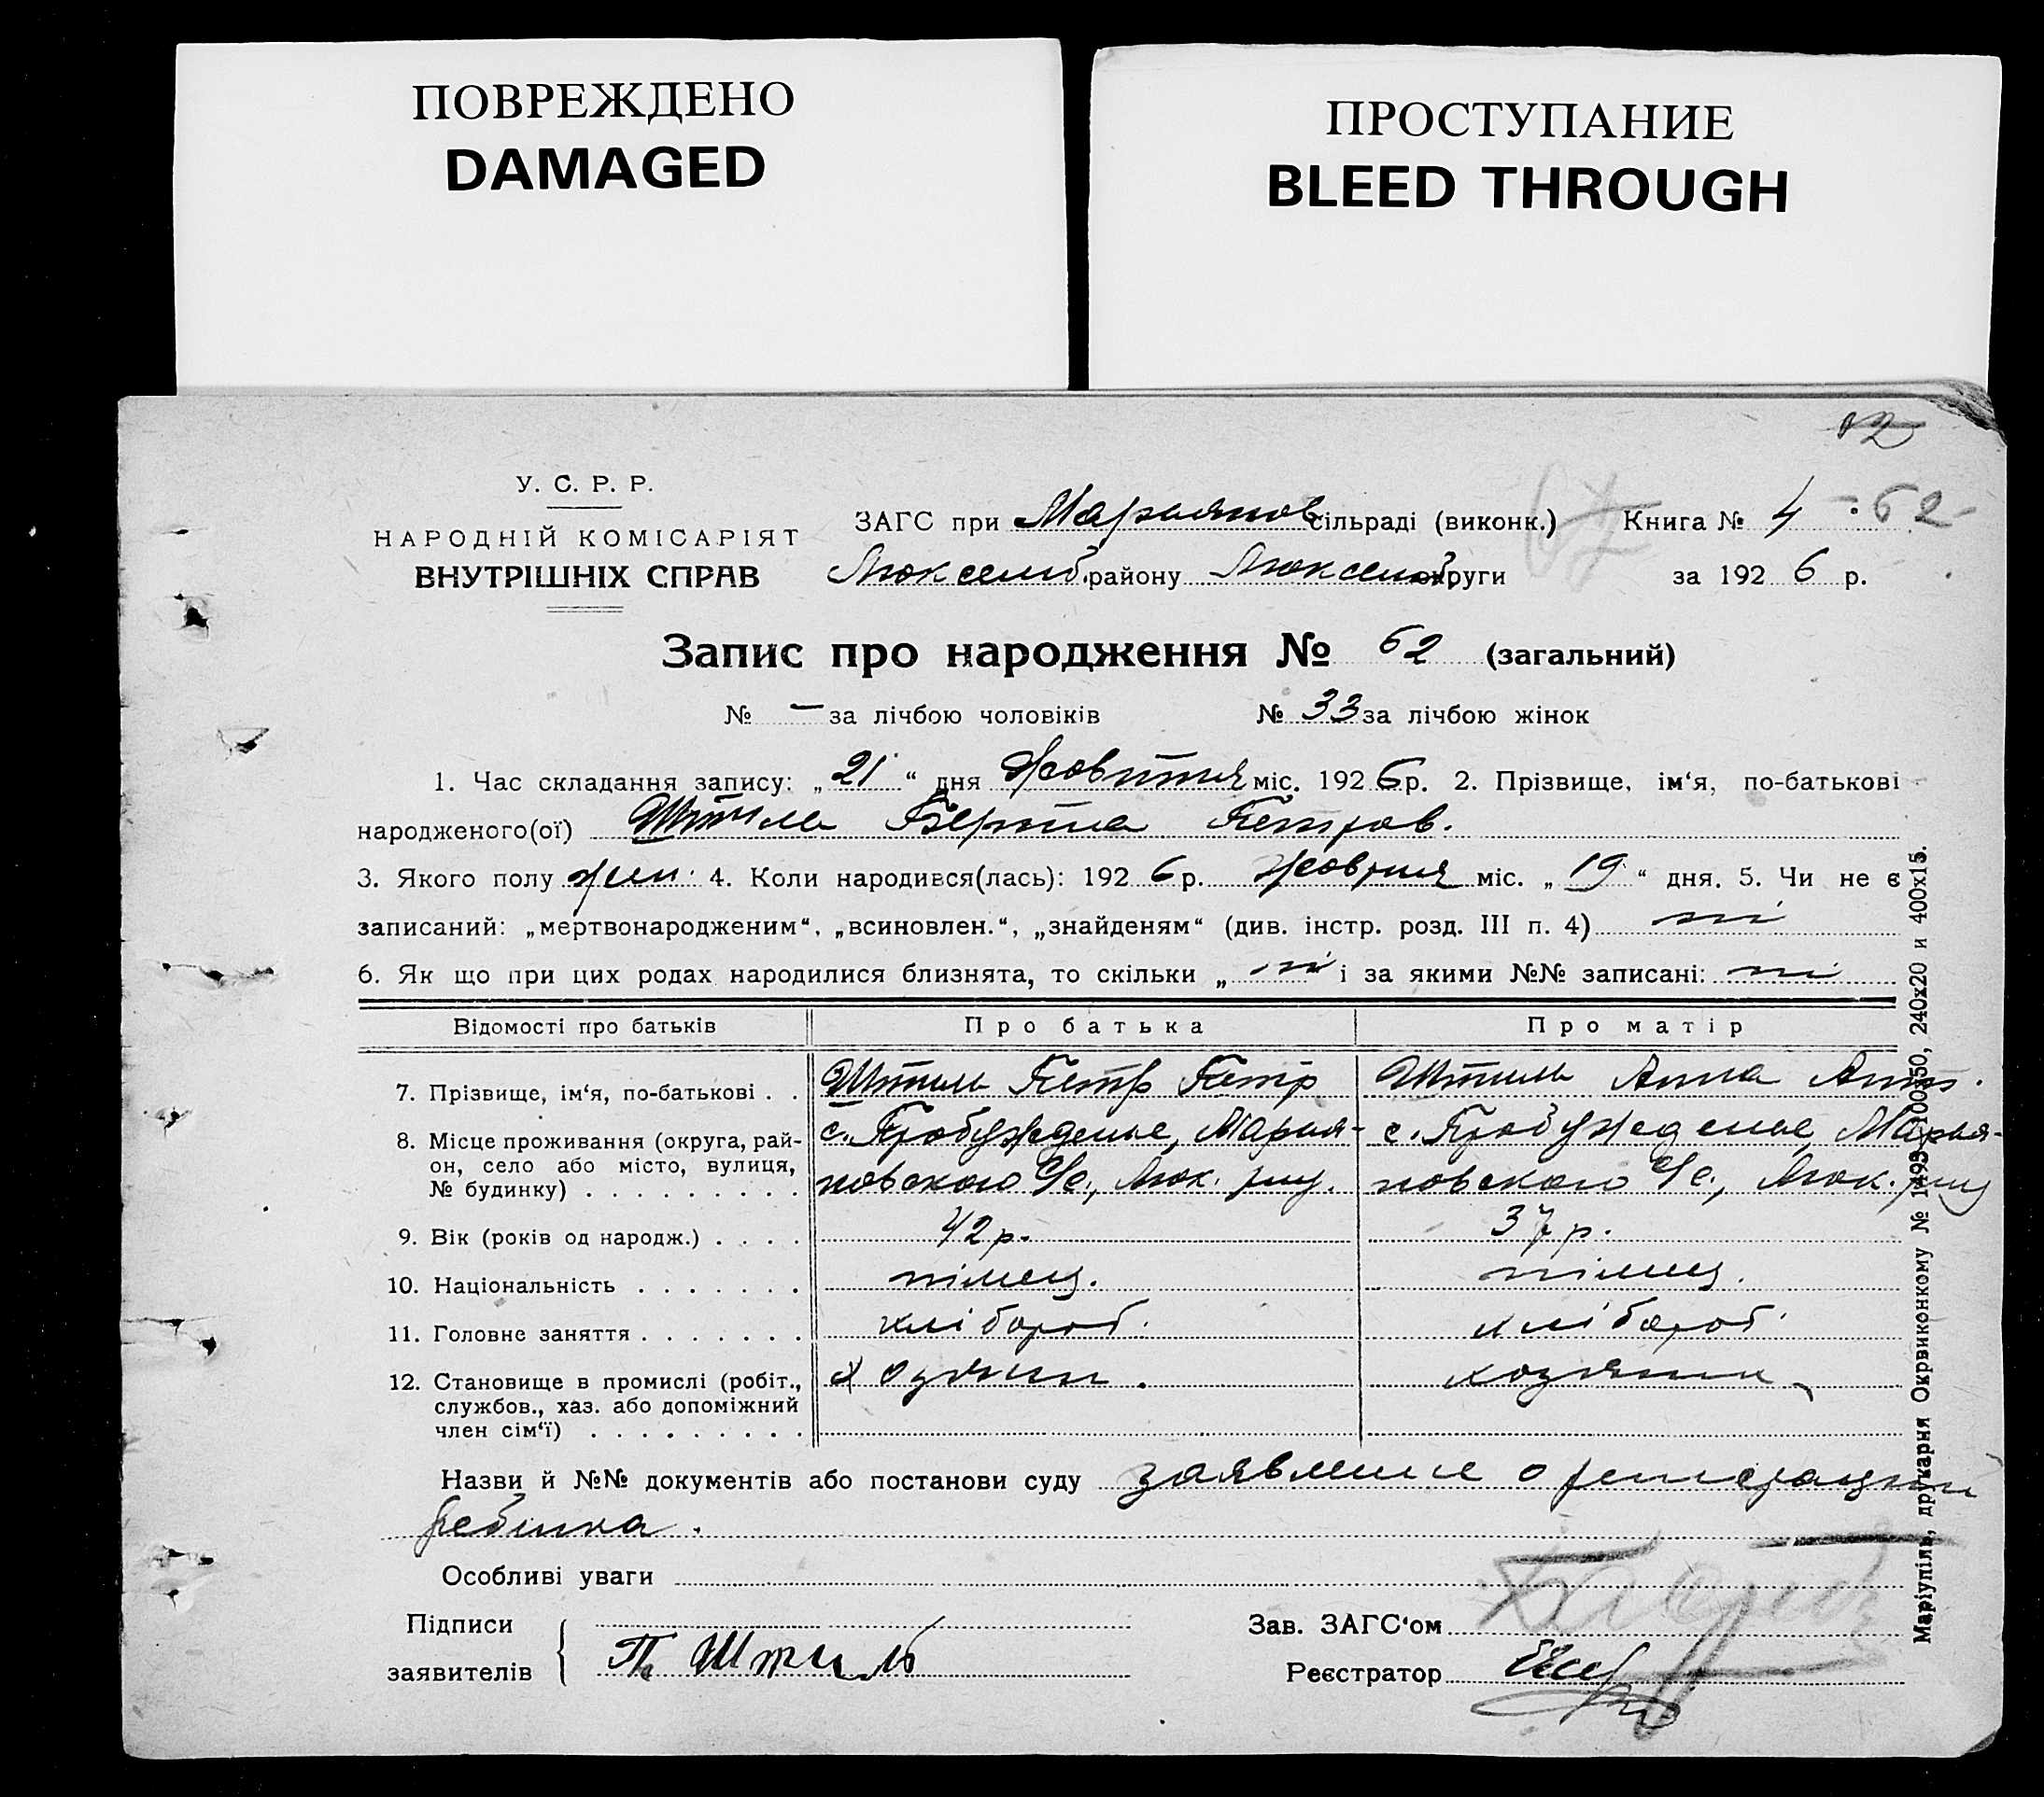 ПОВРЕЖДЕНО
DAMAGED
ПРОСТУПАНИЕ
BLEED THROUGH
12
У. С. Р. Р.
НАРОДНІЙ КОМІСАРІЯТ
ВНУТРІШНІХ СПРАВ
ЗАГС при Марьянов сільраді (виконк.) Книга № 4 - 62 -
Люксемб. району Люксемб. округи за 1926 р.
Запис про народження № 62 (загальний)
№ — за лічбою чоловіків № 33 за лічбою жінок
1. Час складання запису: „21“ дня Жовтня міс. 1926 р. 2. Прізвище, ім‘я, по-батькові
народженого(ої) Штиль Берта Петров.
3. Якого полу жін. 4. Коли народився(лась): 1926 р. жовтня міс. „19“ дня. 5. Чи не є
записаний: „мертвонародженим“, „всиновлен.“, „знайденям“ (див. інстр. розд. III п. 4) ні
6. Як що при цих родах народилися близнята, то скільки „ ні і за якими №№ записані: ні
Відомості про батьків Про батька Про матір
7. Прізвище, ім‘я, по-батькові . . Штиль Петр Петр Штиль Анна Ант.
8. Місце проживання (округа, рай- с. Пробужденье, Марья- с. Пробужденье, Марья-
он, село або місто, вулиця, новского С/с., Люк. рну. новского С/с., Люк. рну
№ будинку) . . . . . . . . .
9. Вік (років од народж.) . . . . 42 р. 37 р.
10. Національність . . . . . . . німец. німец.
11. Головне заняття . . . . . . . хлібороб. хлібороб.
12. Становище в промислі (робіт., хозяин. хозяин
службов., хаз. або допоміжний
член сім‘ї) . . . . . . . . .
Назви й №№ документів або постанови суду заявление о регистрации
ребенка.
Особливі уваги
Підписи
заявителів П. Штиль
Зав. ЗАГС‘ом
Реєстратор
Маріупіль, друкарня Окрвиконкому № 1493-100х50, 240х20 и 400х15.